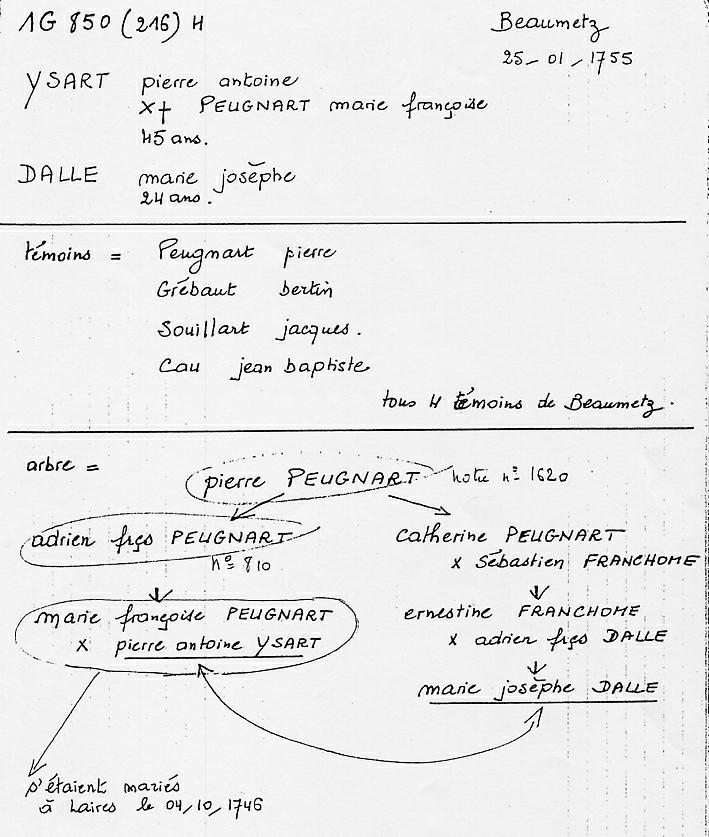 1G 850 (216) H
Beaumetz
25-01-1755
YSART pierre antoine
x† PEUGNART marie françoise
45 ans.
DALLE marie josèphe
24 ans.
témoins = Peugnart pierre
Grébaut bertin
Souillart jacques.
Cau jean baptiste
tous 4 témoins de Beaumetz.
arbre =
pierre PEUGNART notre n° 1620
adrien frçs PEUGNART
n° 810
catherine PEUGNART
x Sébastien FRANCHOME
marie françoise PEUGNART
x pierre antoine YSART
ernestine FRANCHOME
x adrien frçs DALLE
marie josèphe DALLE
s'étaient mariés
à Laires le 04/10/1746